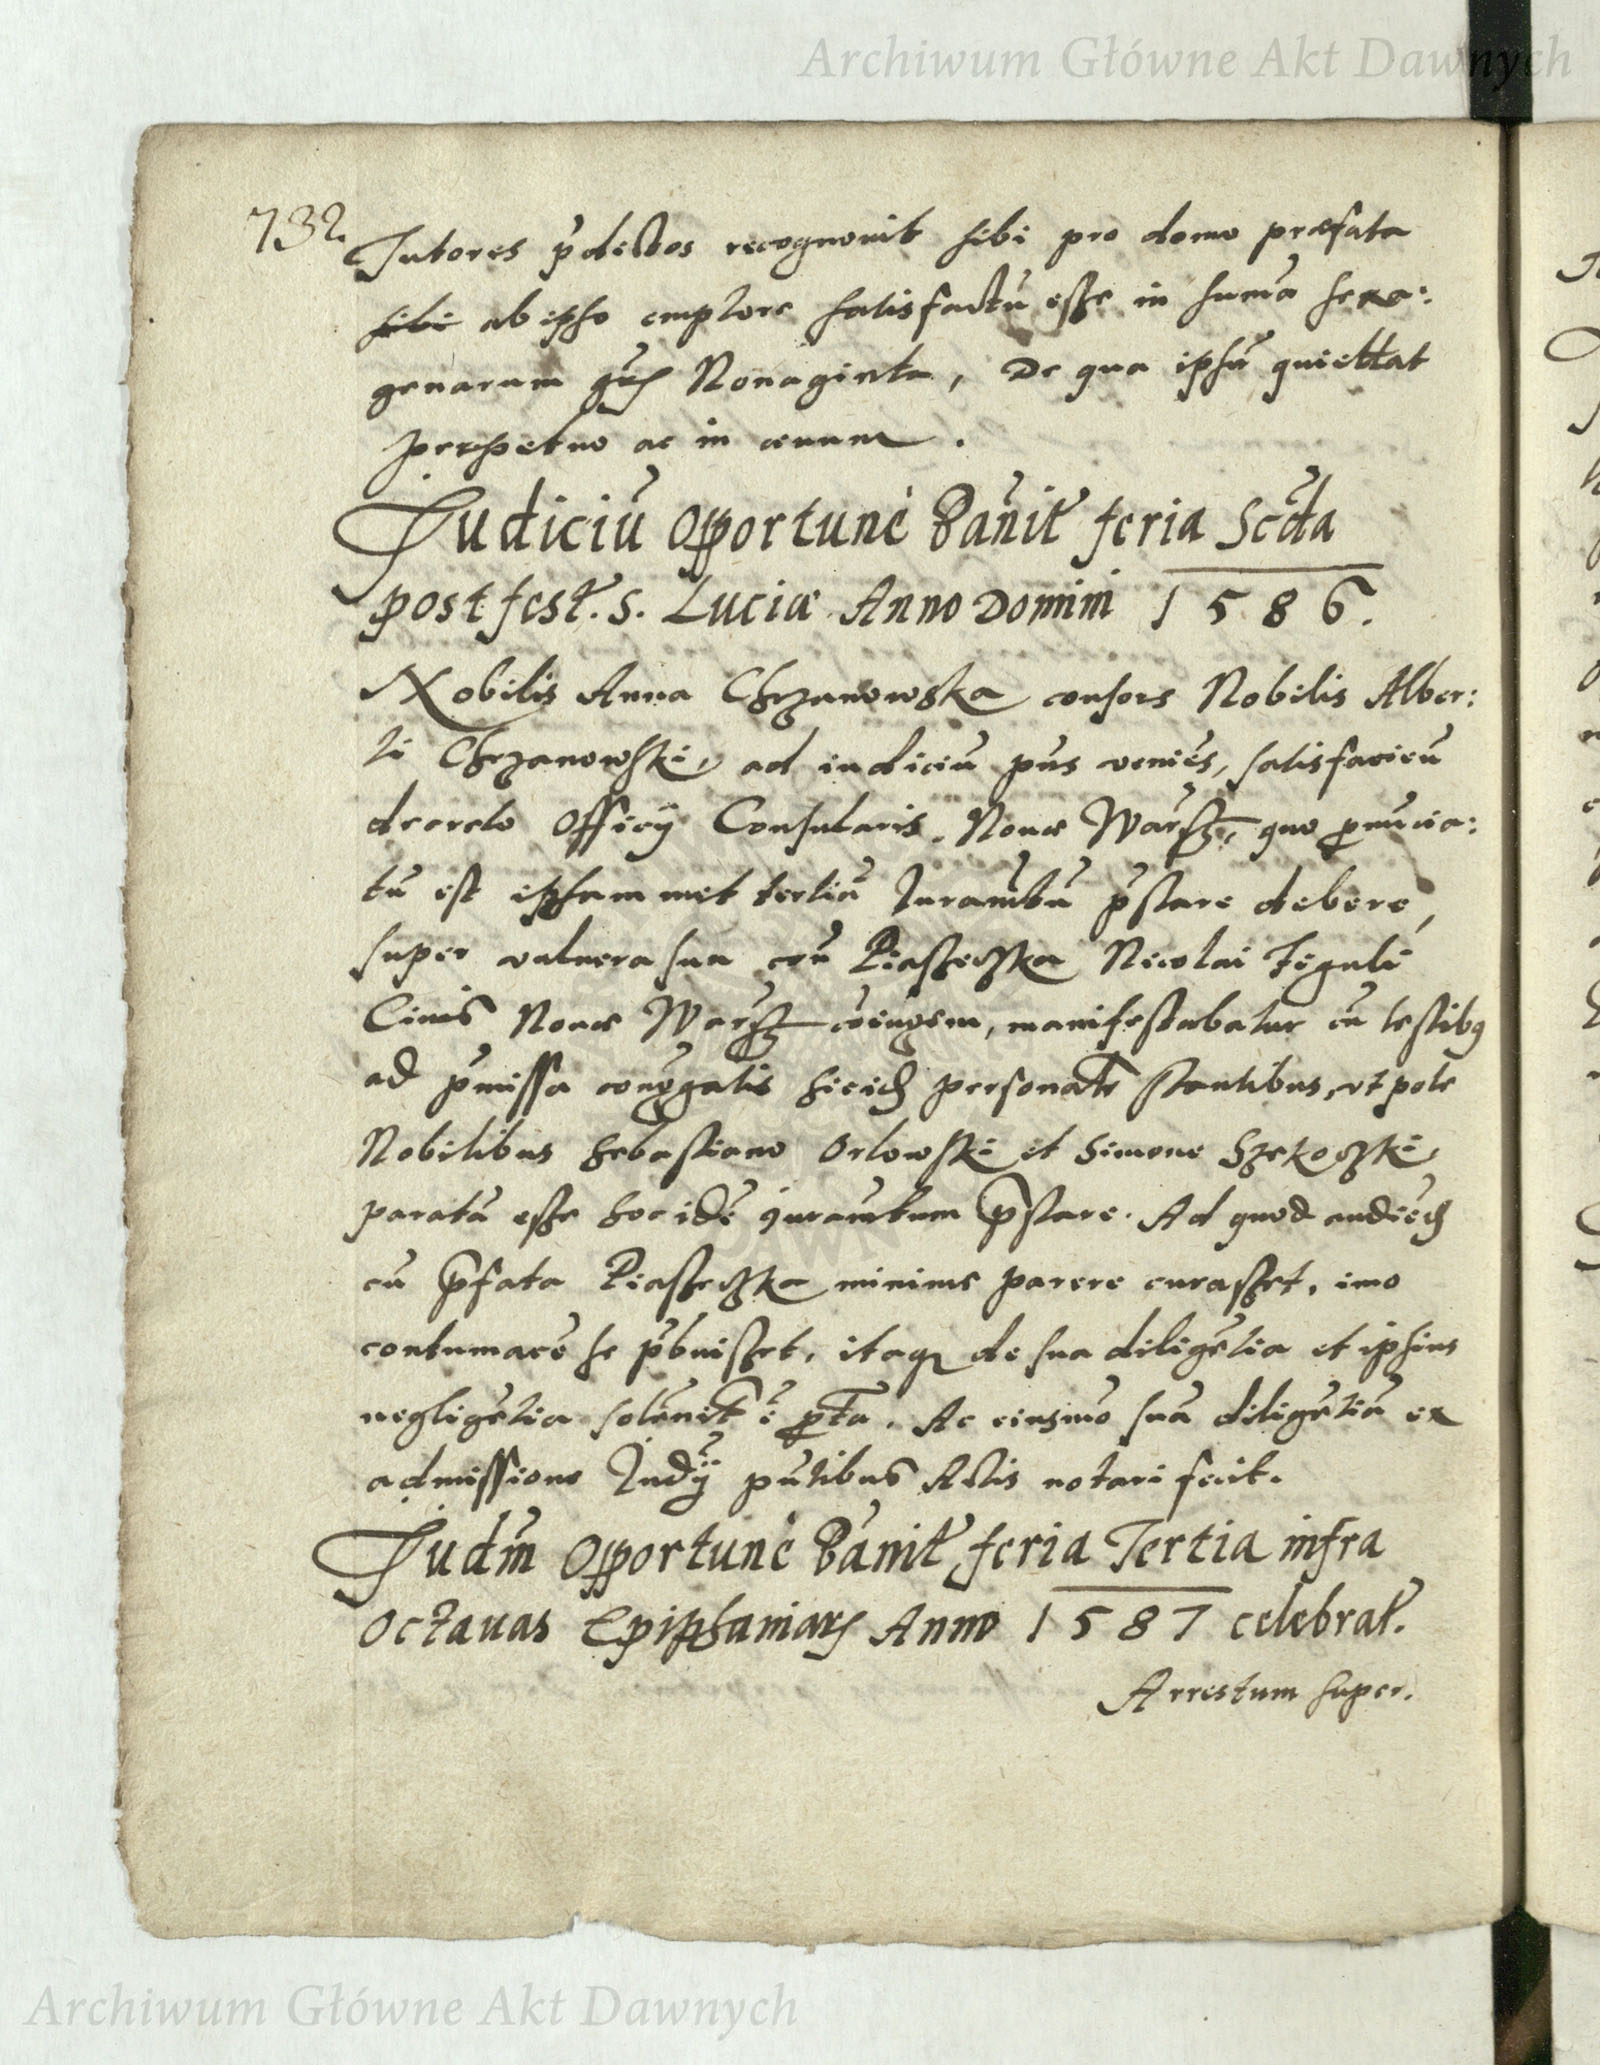 Archiwum Główne Akt Dawnych
732.
Tutores p̃dictos recognouit sibi pro domo præfata
sibi ab ipso emptore satisfactũ esse in suma sexa:
genarum Nonaginta, De qua ipsũ quiettat
perpetuo ac in æuum.
Judiciũ Opportunè Bañit̃ feria Scd̃a
post fest̃. S. Luciæ Anno Domini 1586.
Nobilis Anna Chrzanowska consors Nobilis Alber:
ti Chrzanowski, ad iudiciũ p̃ns veniẽs, satisfaciẽ
decreto Officij Consularis Nouæ Warsz, quo ꝓnũcia:
tũ est ipsam met tertiã Juramẽtũ p̃stare debere,
super vulnera sua cũ Piaszeczka Nicolai Figuli
Ciuis Nouæ Warsz coniugem, manifestabatur cũ testibꝫ
ad p̃missa coniugatis personalr̃ stantibus, vt pote
Nobilibus Sebastiano Orlowski et Simone Szekoczki
paratã esse hoc idẽ iuramẽtum p̃stare. Ad quod audiẽd
cũ p̃fata Piaszeczka minime parere curasset, imo
contumacẽ se p̃buisset, itaqꝫ de sua diligẽtia et ipsius
negligẽtia solẽnit̃ ẽ ꝓt̃a. Ac eiusmo suã diligẽtiã ex
admissione Judĩj p̃ntibus Actis notari fecit.
Judm̃ Opportunè Bañit̃ feria Tertia infra
Octauas Epiphaniarꝫ Anno 1587 celebrat̃.
Arrestum super.
Archiwum Główne Akt Dawnych